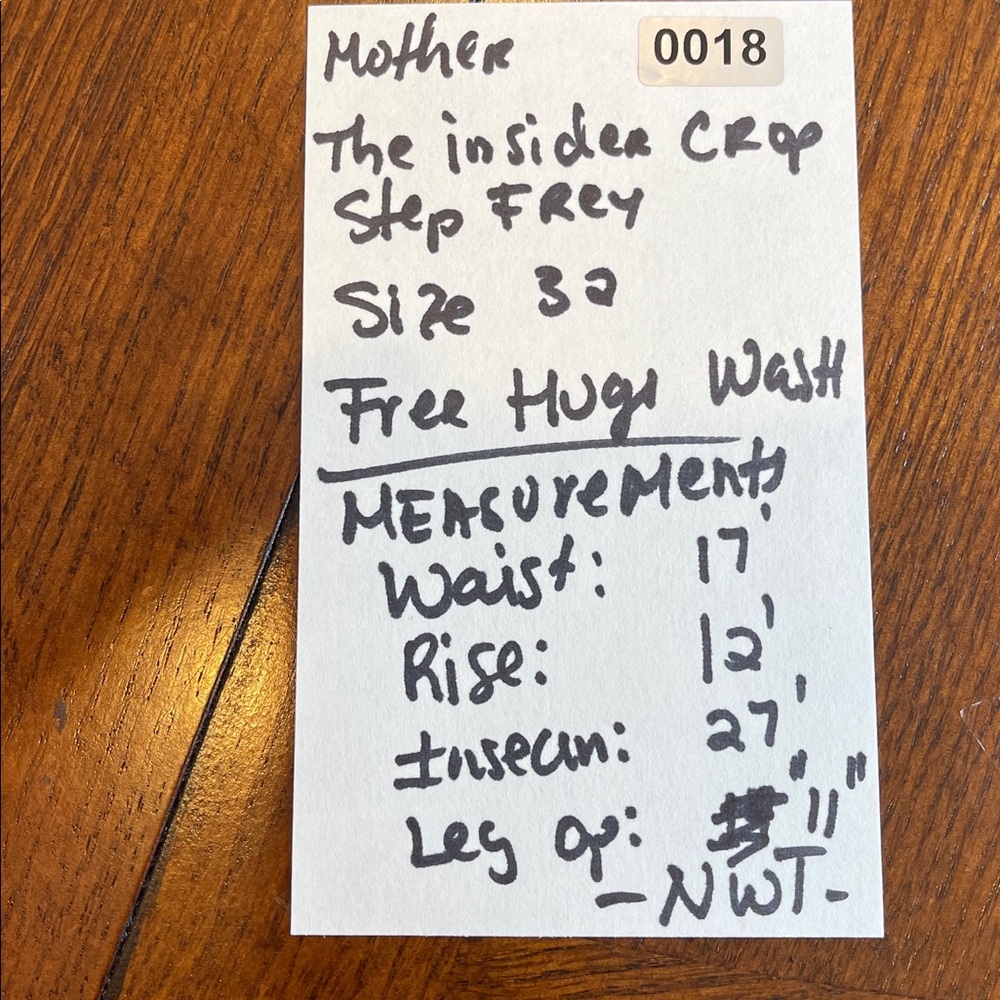 Mother 0018
The insider CRop
Step FRey
Size 32
Free Hugs Wash
MEAsureMents
Waist: 17'
Rise: 12'
Inseam: 27'
Leg op: 11"
- NWT -